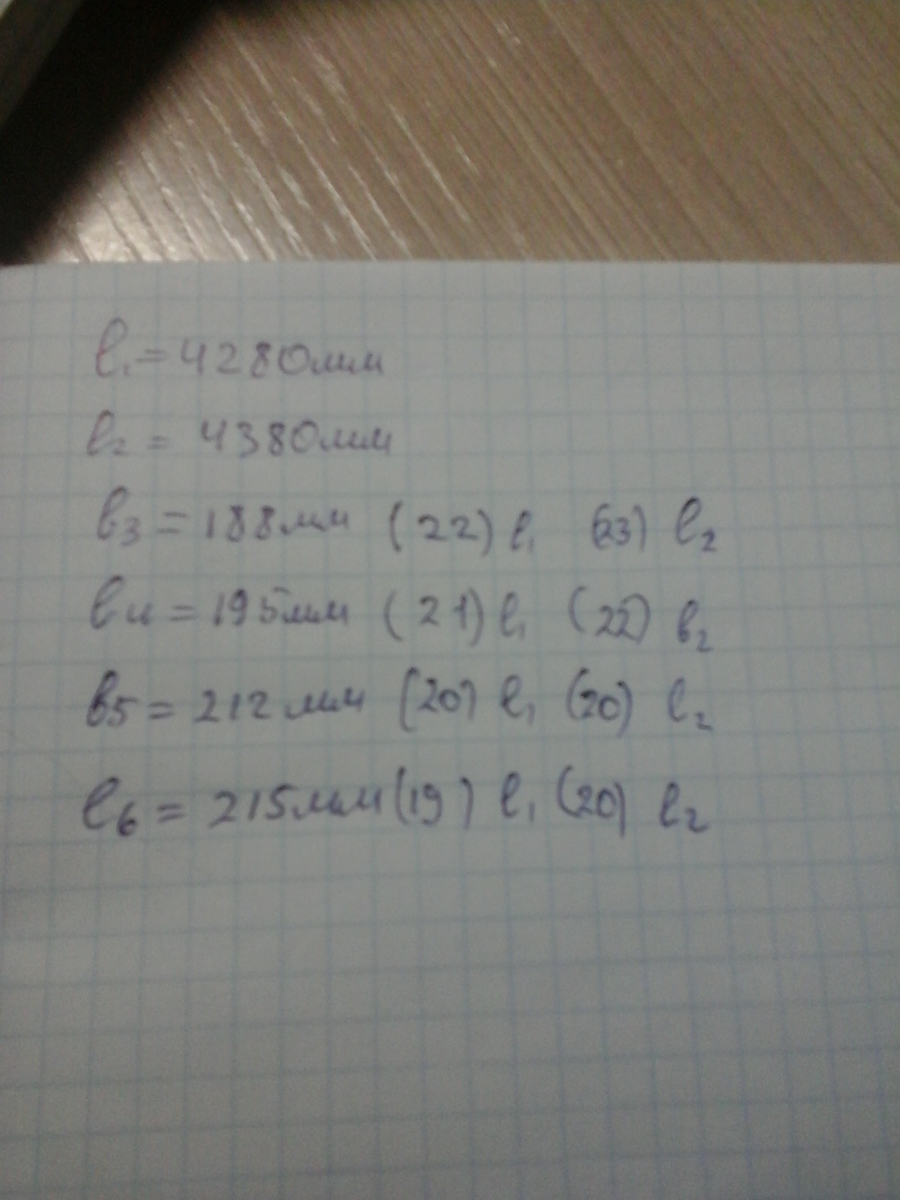 l₁ = 4280мм
l₂ = 4380мм
l₃ = 188мм (22) l₁ (23) l₂
l₄ = 195мм (21) l₁ (22) l₂
l₅ = 212мм (20) l₁ (20) l₂
l₆ = 215мм (19) l₁ (20) l₂